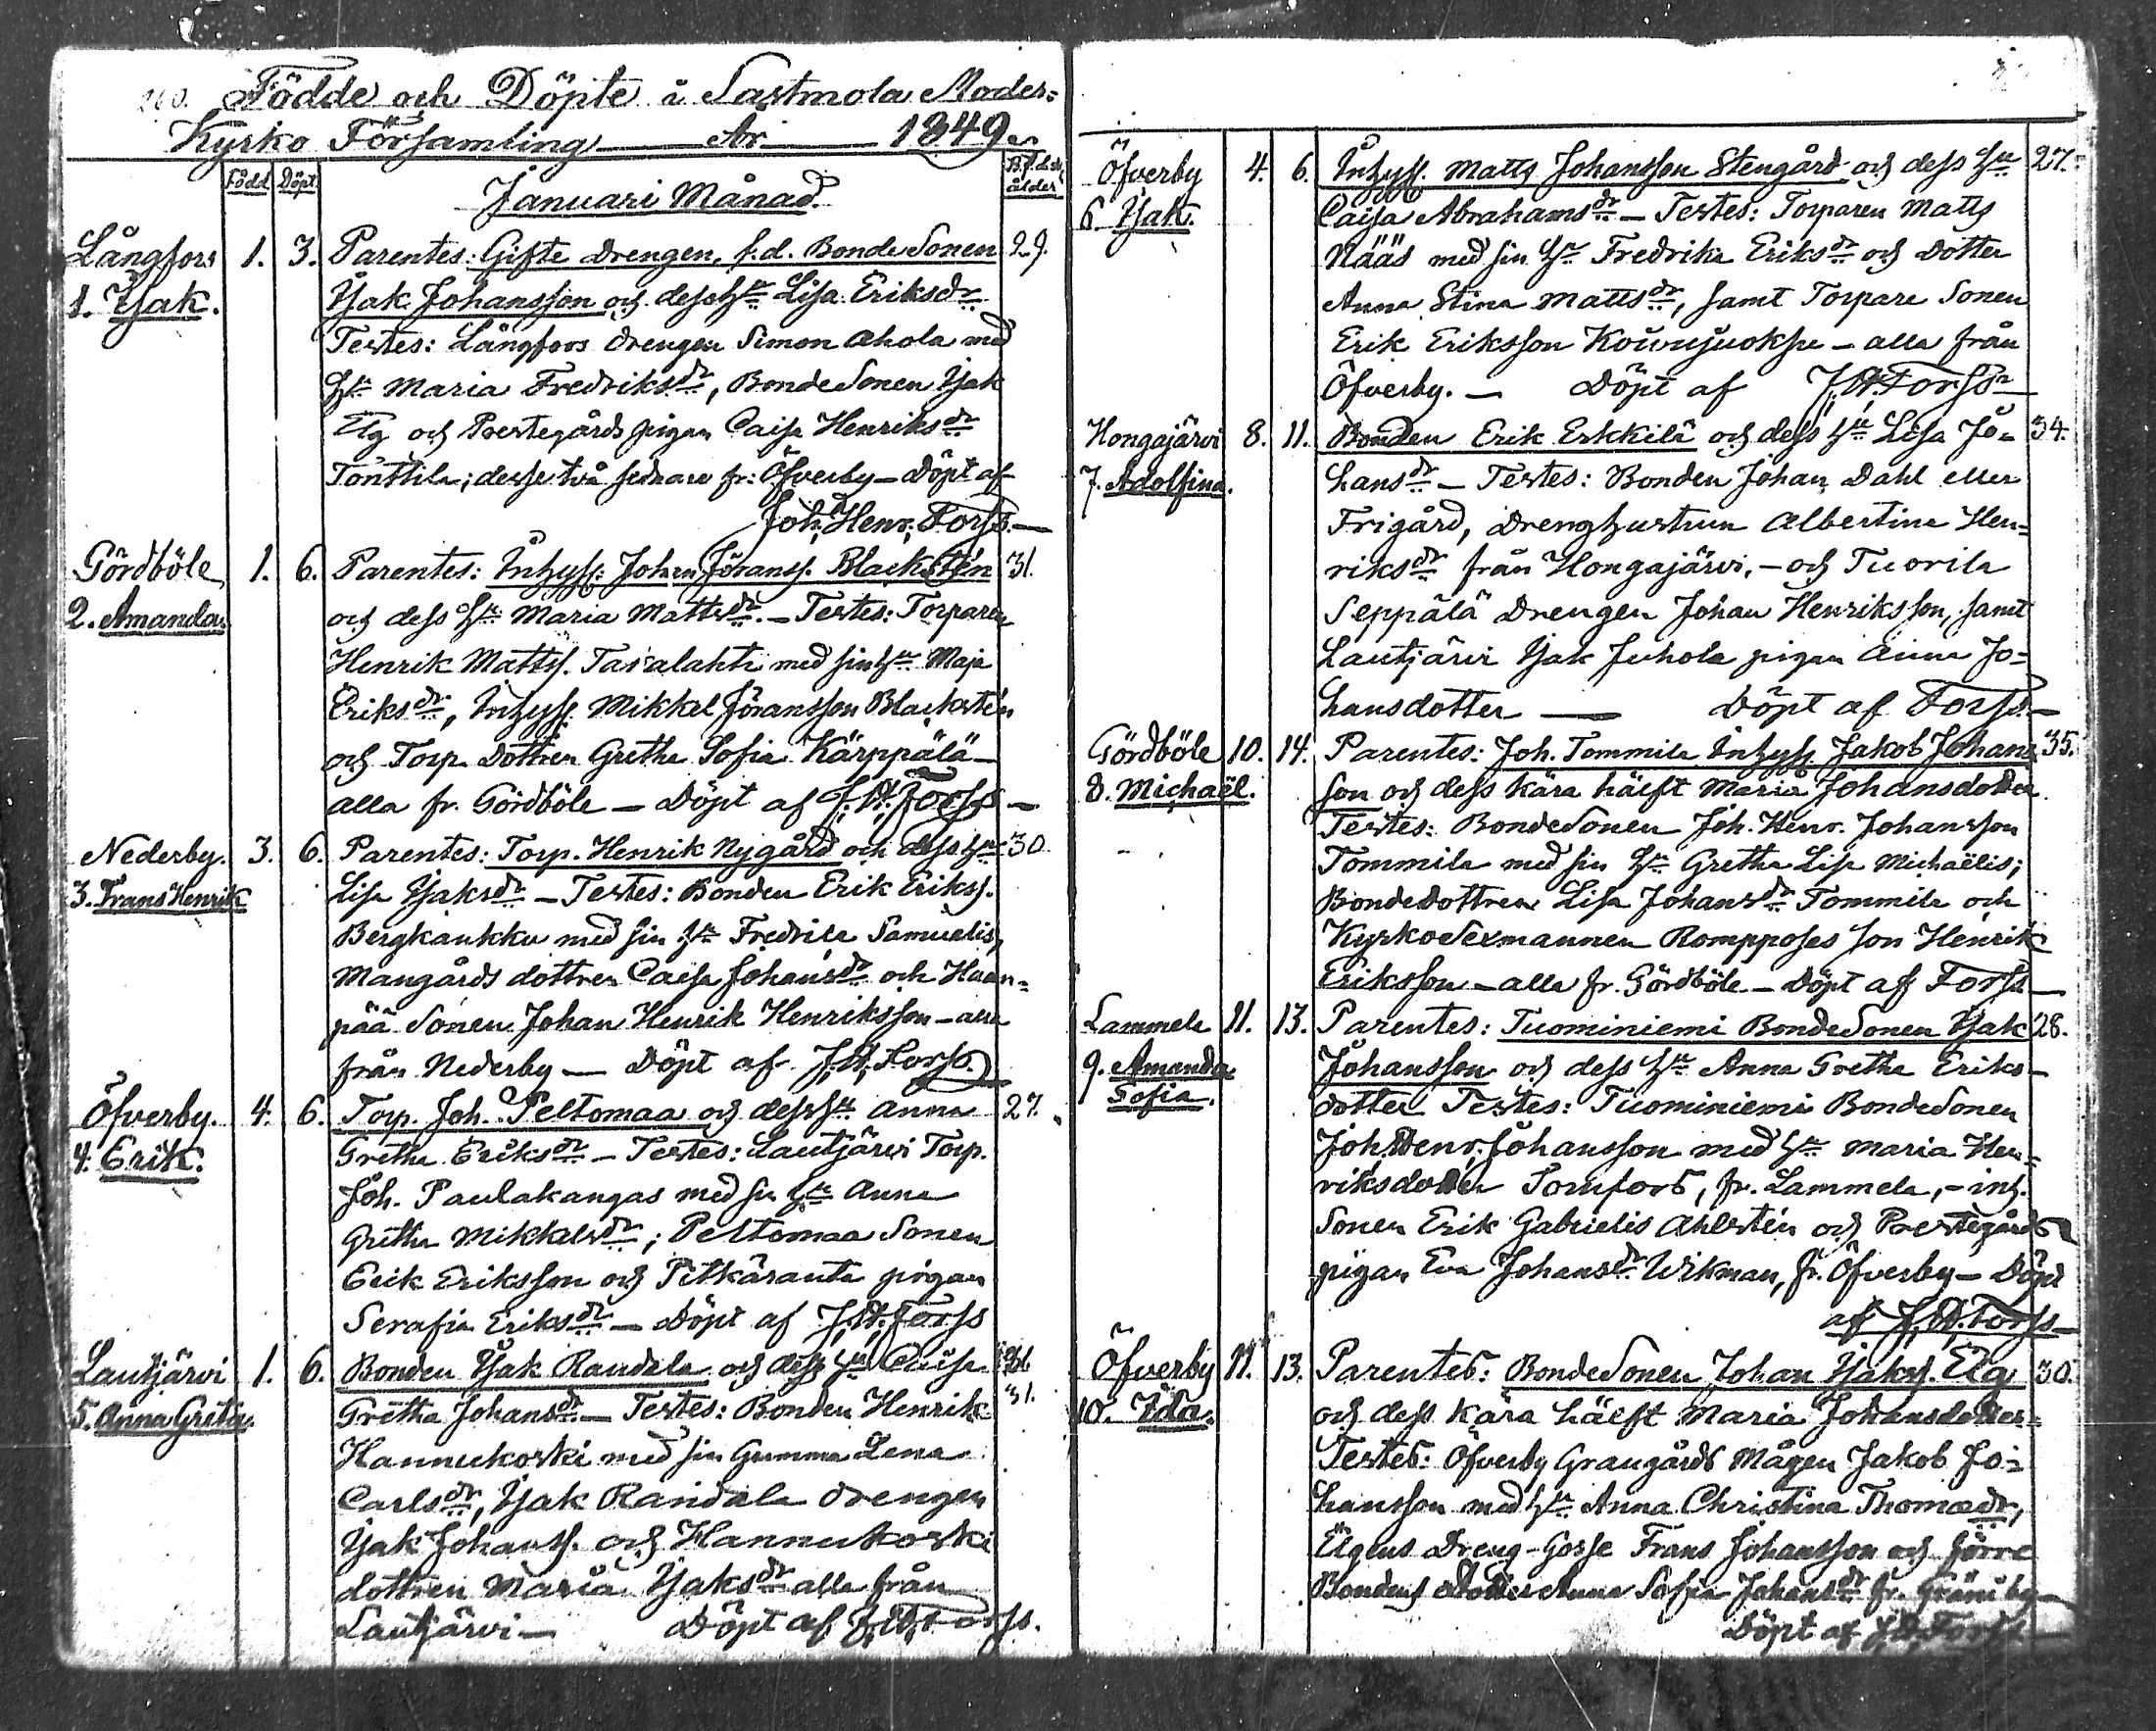 260. Födde och Döpte i Sastmola Moder=
Kyrko Församling — År — 1849
Född Döpt Januari Månad. ålder
Långfors 1. 3. Parentes: Gifte Drengen, f.d. BondeSonen 29.
1. Isak. Isak Johansson och dess Hu Lisa Eriksdr
Testes: Långfors drengen Simon Ahola med
Hu Maria Fredriksdr, BondeSonen Isak
Elg och Prestegårds pigan Caisa Henriksdr
Tonttila; desse två sednare fr: Öfverby — Döpt af
Joh. Henr. Forss. —
Gördböle 1. 6. Parentes: Inhyss: Johan Jöranss. Blackstén 31.
2. Amanda. och dess Hu Maria Mattsdr. — Testes: Torparen
Henrik Mattss. Tavalahti med sin Hu Maja
Eriksdr, Inhyss: Mikkel Jöransson Blackstén
och Torp. Dottren Gretha Sofia Kärppälä —
alla fr. Gördböle — Döpt af J.H. Forss —
Nederby. 3. 6. Parentes: Torp. Henrik Nygård och dess Hu 30
3. Frans Henrik Lisa Isaksdr — Testes: Bonden Erik Erikss.
Bergkaukku med sin Hu Fredrica Samuelis,
Mangårds dottren Caisa Johansdr och Haan=
pää Sonen Johan Henrik Henriksson — alla
från Nederby — Döpt af J.H. Forss.
Öfverby. 4. 6. Torp. Joh. Peltomaa och dess Hu Anna 27.
4. Erik. Gretha Eriksdr — Testes: Lautjärvi Torp.
Joh. Paulakangas med sin Hu Anna
Gretha Mikkelsdr; Peltomaa Sonen
Erik Eriksson och Pitkäranta pigan
Serafia Eriksdr — Döpt af J.H. Forss
Lautjärvi 1. 6. Bonden Isak Randala och dess Hu Caisa
5. Anna Greta. Gretha Johansdr — Testes: Bonden Henrik 31.
Hannukoski med sin Gumma Lena
Carlsdr, Isak Randala drengen
Isak Johanss. och Hannukoski
dottren Maria Isaksdr alla från
Lautjärvi — Döpt af J.H. Forss.
Öfverby 4. 6. Inhyss. Matts Johansson Stengård och dess Hu 27.
6 Isak. Caisa Abrahamsdr — Testes: Torparen Matts
Nääs med sin Hu Fredrika Eriksdr och Dotter
Anna Stina Mattsdr, samt Torpare Sonen
Erik Eriksson Kouvujuoksu — alla från
Öfverby. — Döpt af J.H. Forss —
Hongajärvi 8. 11. Bonden Erik Erkkilä och dess Hu Lisa Jo= 34.
7. Adolfina. hansdr — Testes: Bonden Johan Dahl eller
Frigård, Drenghustrun Albertina Hen=
riksdr från Hongajärvi, — och Tuorila
Seppälä Drengen Johan Henriksson, samt
Lautjärvi Isak Juhola pigan Anna Jo=
hansdotter — Döpt af Forss. —
Gördböle 10. 14. Parentes: Joh. Tommila Inhyss Jakob Johans 35.
8. Michaël. son och dess kära hälft Maria Johansdotter
Testes: BondeSonen Joh. Henr. Johansson
Tommila med sin Hu Gretha Lisa Michaëlis;
Bondedottren Lisa Johansdr Tommila och
KyrkoSexmannen Rompposes son Henrik
Eriksson — alla fr. Gördböle — Döpt af Forss —
Lammela 11. 13. Parentes: Tuominiemi BondeSonen Isak 28.
9. Amanda Johansson och dess Hu Anna Gretha Eriks —
Sofia. dotter Testes: Tuominiemi BondeSonen
Joh. Henr. Johansson med Hu Maria Hen=
riksdotter Tomfors, fr. Lammela, — inh.
Sonen Erik Gabrielis Ahlstén och Prestegårds
pigan Eva Johansdr Wikman, fr. Öfverby — Döpt
af J.H. Forss —
Öfverby 11. 13. Parentes: BondeSonen Johan Isakss. Elg 30.
10. Ida. och dess kära hälft Maria Johansdotter —
Testes: Öfverby Graugårds Mågen Jakob Jo=
hansson med Hu Anna Christina Thomædr,
Elgens Dreng-Gosse Frans Johansson och förre
Bondens dotter Anna Sofia Johansdr fr. Öfverby —
Döpt af J.H. Forss —